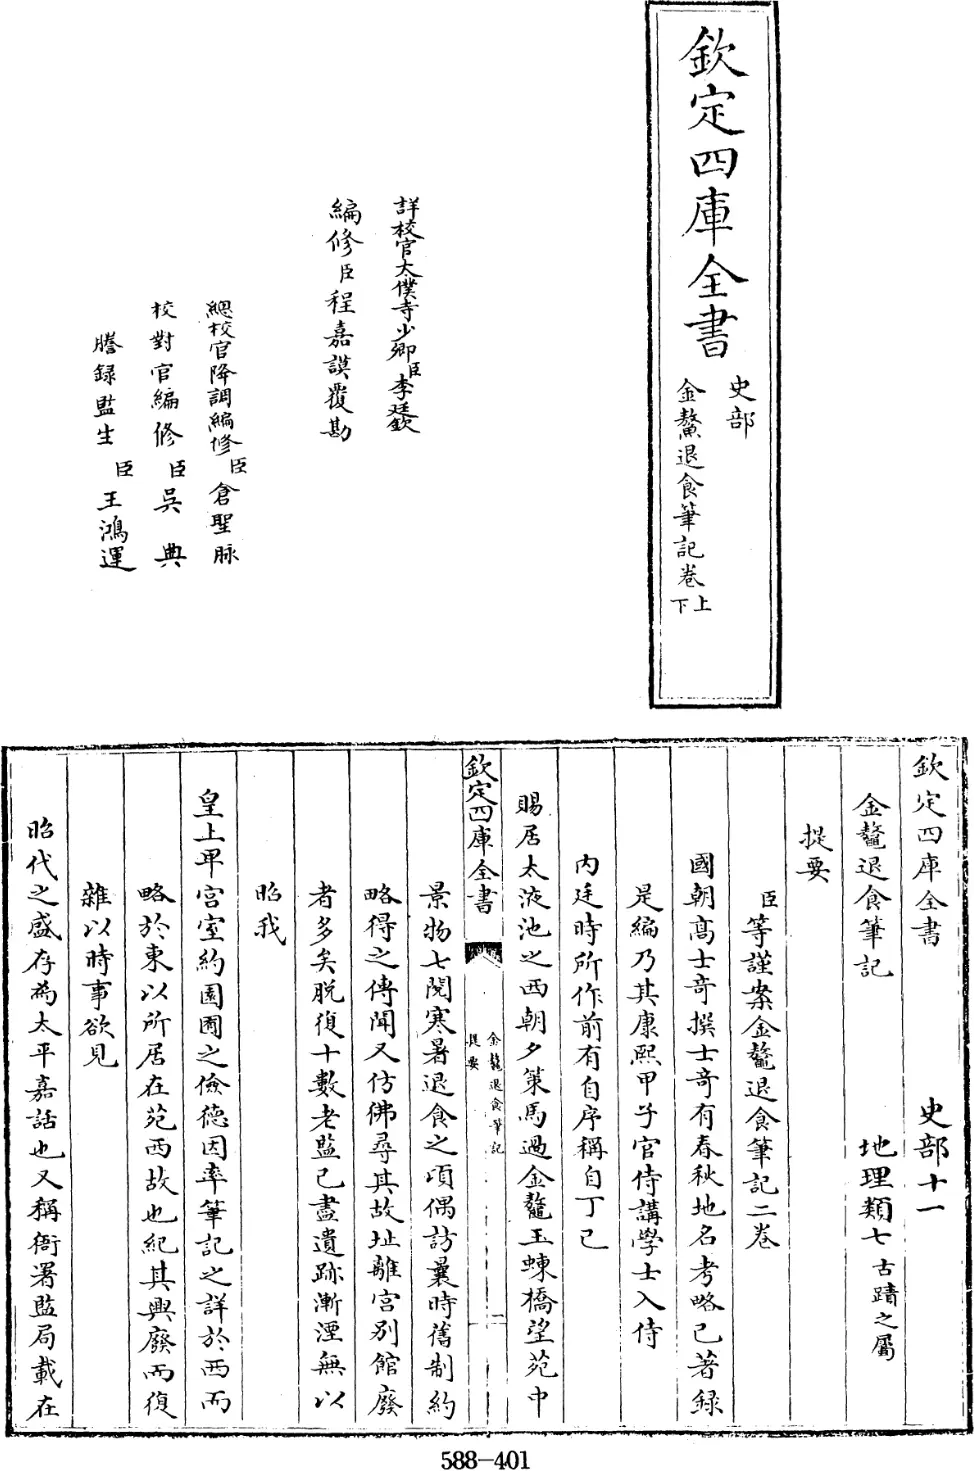 欽定四庫全書
史部
金鰲退食筆記卷上下
詳校官太僕寺少卿臣李廷欽
編修臣程嘉謨覆勘
總校官降調編修臣倉聖脉
校對官編修臣吳典
謄録監生臣王鴻運
欽定四庫全書 史部十一
金鼇退食筆記 地理類七古蹟之屬
提要
臣等謹案金鼇退食筆記二卷
國朝高士奇撰士奇有春秋地名考略已著録
是編乃其康熙甲子官侍講學士入侍
内廷時所作前有自序稱自丁巳
賜居太液池之西朝夕策馬過金鼇玉蝀橋望苑中
欽定四庫全書
金鼇退食筆記
提要
二
景物七閱寒暑退食之頃偶訪曩時舊制約
略得之傳聞又仿佛尋其故址離宫别館廢
者多矣脱復十數老監已盡遺跡漸湮無以
昭我
皇上卑宫室約園囿之儉德因率筆記之詳於西而
略於東以所居在苑西故也紀其興廢而復
雜以時事欲見
昭代之盛存為太平嘉話也又稱衙署監局載在
588-401